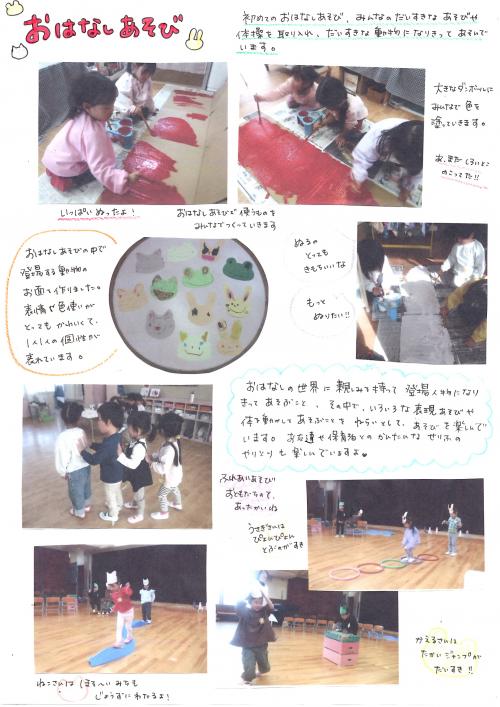 おはなしあそび
初めてのおはなしあそび、みんなのだいすきなあそびや
体操を取り入れ、だいすきな動物になりきってあそんで
います。
大きなダンボールに
みんなで色を
塗っていきます。
あ、まだしろいとこ
のこってた!!
いっぱいぬったよ!
おはなしあそびで使うものを
みんなでつくっていきます
おはなしあそびの中で
登場する動物の
お面を作りました。
表情や色使いが
とってもかわいくて、
1人1人の個性が
表れています。
ぬるの
とっても
きもちいいな
もっと
ぬりたい!!
おはなしの世界に親しみを持って登場人物になり
きってあそぶこと、その中で、いろいろな表現あそびや
体を動かしてあそぶことをねらいとして、あそびを楽しんで
います。お友達や保育士とのかんたんなせりふの
やりとりも楽しんでいますよ♥
ふれあいあそび
おともだちって、
あったかいね
うさぎさんは
ぴょんぴょん
とぶのがすき
ねこさんは
じょうずにわたるよ!
かえるさんは
たかいジャンプが
だいすき!!